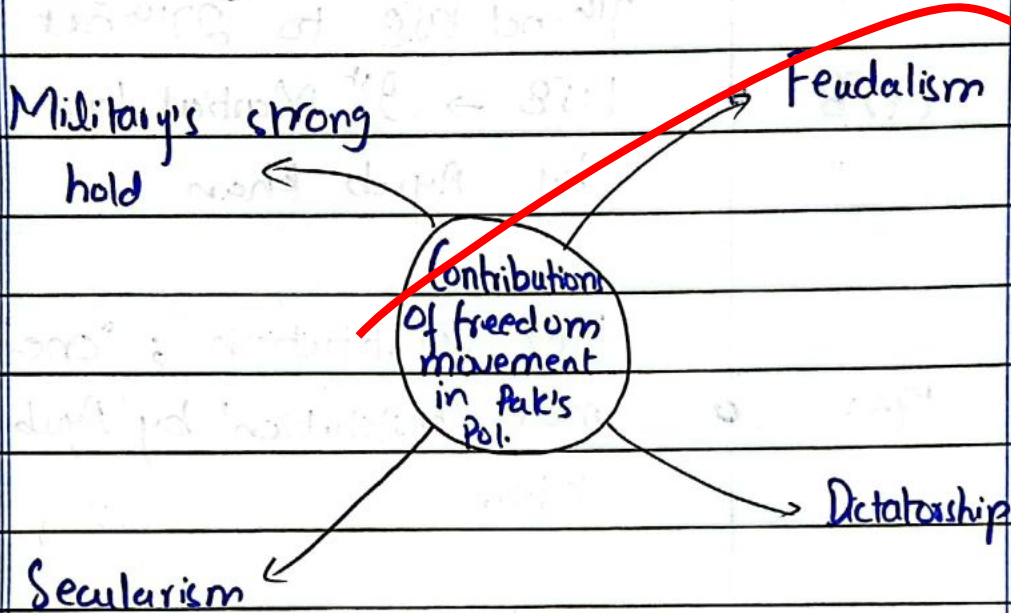 Military's strong
hold
Feudalism
Contributions
of freedom
movement
in Pak's
Pol.
Dictatorship
Secularism